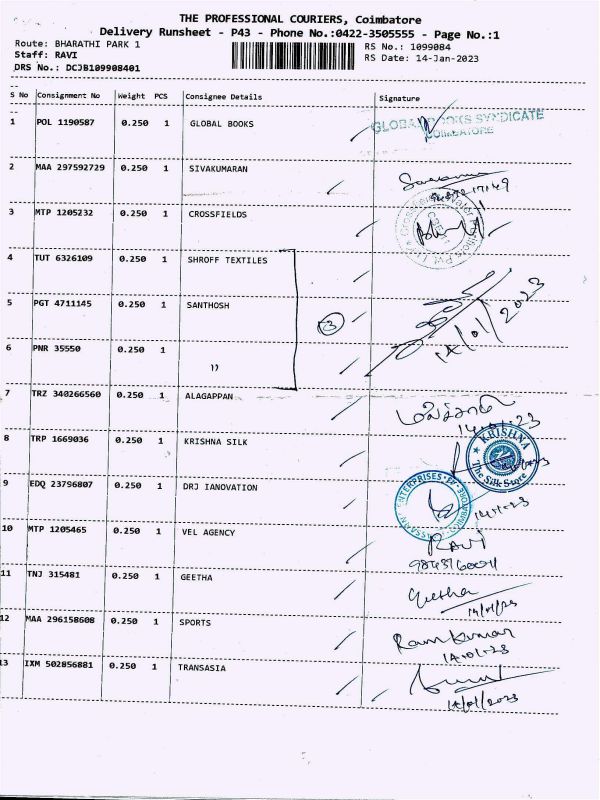 THE PROFESSIONAL COURIERS, Coimbatore
Delivery Runsheet - P43 - Phone No.:0422-3505555 - Page No.:1
Route: BHARATHI PARK 1 RS No.: 1099084
Staff: RAVI RS Date: 14-Jan-2023
DRS No.: DCJB109908401
S No Consignment No Weight PCS Consignee Details Signature
1 POL 1190587 0.250 1 GLOBAL BOOKS
GLOBAL BOOKS SYNDICATE
COIMBATORE
2 MAA 297592729 0.250 1 SIVAKUMARAN
3 MTP 1205232 0.250 1 CROSSFIELDS
4 TUT 6326109 0.250 1 SHROFF TEXTILES
5 PGT 4711145 0.250 1 SANTHOSH
3
14/01/2023
6 PNR 35550 0.250 1 "
7 TRZ 340266560 0.250 1 ALAGAPPAN
14.01.23
8 TRP 1669036 0.250 1 KRISHNA SILK
KRISHNA
The Silk Store
9 EDQ 23796807 0.250 1 DRJ IANOVATION
ENTERPRISES
14.1.23
10 MTP 1205465 0.250 1 VEL AGENCY
RAVI
11 TNJ 315481 0.250 1 GEETHA
Geetha
14/01/23
12 MAA 296158608 0.250 1 SPORTS
Ram Kumar
14.01.23
13 IXM 502856881 0.250 1 TRANSASIA
14/01/2023